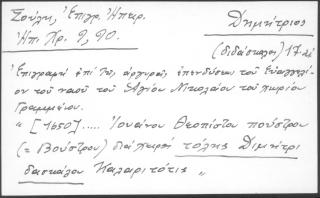 Σούλη, Ἐπιγρ. Ἠπειρ.
Ἠπ. Χρ. 9, 90.
Δημήτριος
(διδάσκαλος) 17 αἰ
Ἐπιγραφή ἐπί τῆς ἀργυρᾶς ἐπενδύσεως τοῦ Εὐαγγελί-
ου τοῦ ναοῦ τοῦ Ἁγίου Νικολάου τοῦ χωρίου
Γραμμένου.
" [1650]..... Ἰουάνου Θεοπίστου πούστρου
(= Βούστρου) διά χειρί τόλης Διμήτρι
δασκάλου Καλαριτότις "